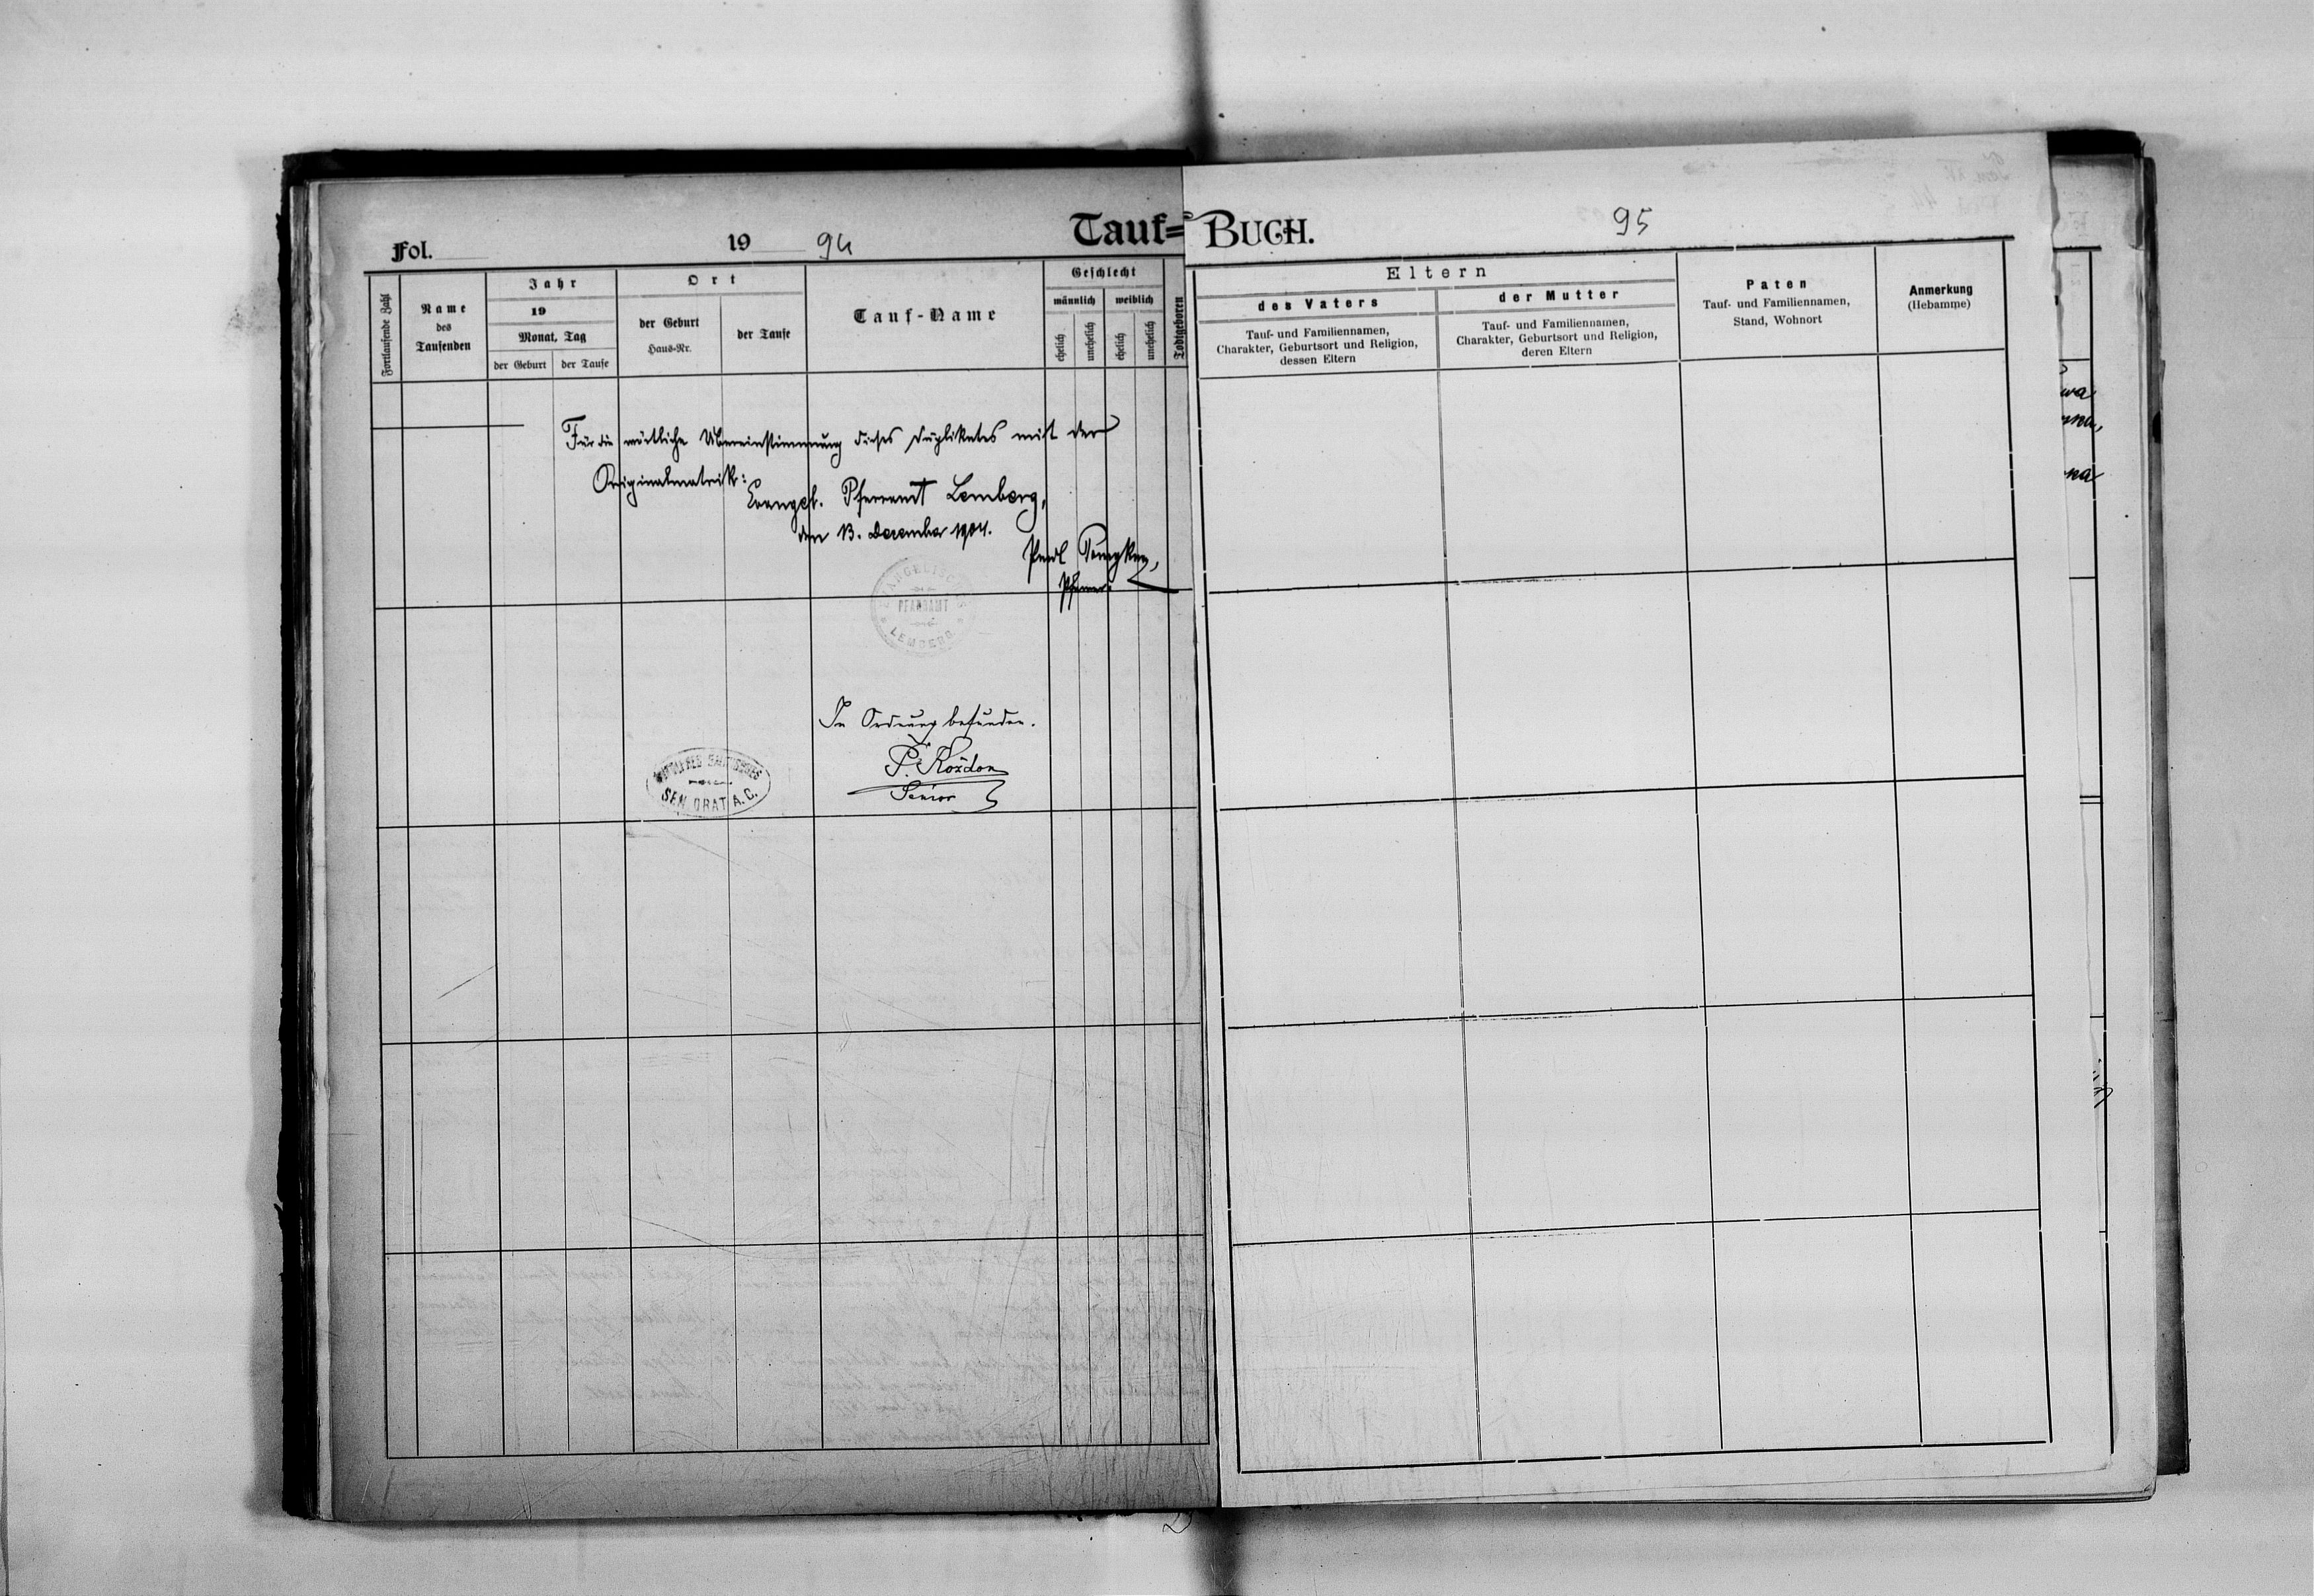 Tauf=
BUCH.
Fol.
19
94
95
Fortlaufende Zahl
Name
des
Taufenden
Jahr
19
Monat, Tag
der Geburt
der Taufe
Ort
der Geburt
Haus-Nr.
der Taufe
Tauf-Name
Geschlecht
männlich
weiblich
ehelich
unehelich
ehelich
unehelich
Todtgeboren
Eltern
des Vaters
Tauf- und Familiennamen,
Charakter, Geburtsort und Religion,
dessen Eltern
der Mutter
Tauf- und Familiennamen,
Charakter, Geburtsort und Religion,
deren Eltern
Paten
Tauf- und Familiennamen,
Stand, Wohnort
Anmerkung
(Hebamme)
Für die wörtliche Übereinstimmung dieses Duplikates mit der
Originalmatrik:
Evangel. Pfarramt Lemberg,
den 13. Dezember 1904.
Paul
Pfarrer.
EVANGELISCHES
PFARRAMT
LEMBERG
In Ordnung befunden.
P. Koždon
Senior
SENIORAT A. C.